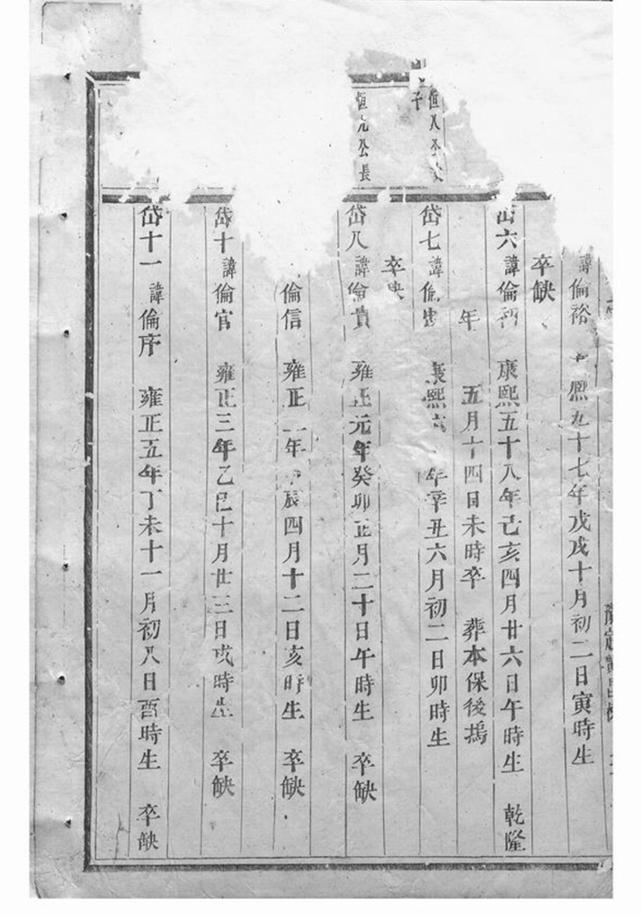 諱倫裕 熙五十七年戊戌十月初二日寅時生
卒缺
六 諱倫 康熙五十八年己亥四月廿六日午時生 乾隆
年 五月十四日未時卒 葬本保後塢
岱七 諱倫 康熙 年辛丑六月初二日卯時生
卒缺
恒元公長
岱八 諱倫貴 雍正元年癸卯正月二十日午時生 卒缺
倫信 雍正二年 辰四月十二日亥時生 卒缺
岱十 諱倫官 雍正三年乙巳十月廿三日戌時生 卒缺
岱十一 諱倫序 雍正五年丁未十一月初八日酉時生 卒缺